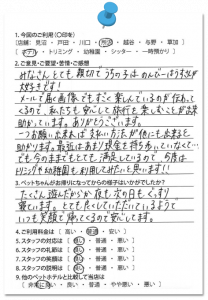 1.今回のご利用(○印を)
[店舗: 見沼 ・ 戸田 ・ 川口 ・ 所沢 ・ 越谷 ・ 与野 ・ 草加 ]
[ホテル ・ トリミング ・ 幼稚園 ・ シッター ・ 一時預かり ]
2.ご意見・ご要望・苦情・ご感想
みなさん とても 親切で うちの子は のんびーりうさぎが
大好きです!
メールで届く画像でもすごく楽しくしているのが伝わって
くるので、私たちも安心して旅行を楽しむことが出来
助かっています。ありがとうございます。
一つお願い出来れば 支払い方法が他にも出来ると
助かります。最近はあまり現金を持ち歩いていなくて…
でも今のままでもとても満足しているので、今度は
トリミングや幼稚園も利用してみたいと思います!!
3.ペットちゃんがお帰りになってからの様子はいかがでしたか?
たくさん遊んだからか 夜も 次の日も ぐっすり
寝ています。とても良くしていただいているようで
いつも笑顔で帰ってくるので安心してます。
4.ご利用料金は [ 高い ・ 普通 ・ 安い ]
5.スタッフの対応は [ 良い ・ 普通 ・ 悪い ]
6.スタッフの礼節は [ 良い ・ 普通 ・ 悪い ]
7.スタッフの笑顔は [ 良い ・ 普通 ・ 悪い ]
8.スタッフの説明は [ 良い ・ 普通 ・ 悪い ]
9.他のペットホテルと比較して当店は
[ 非常に良い ・ 良い ・ 普通 ・ やや悪い ・ 悪い ]